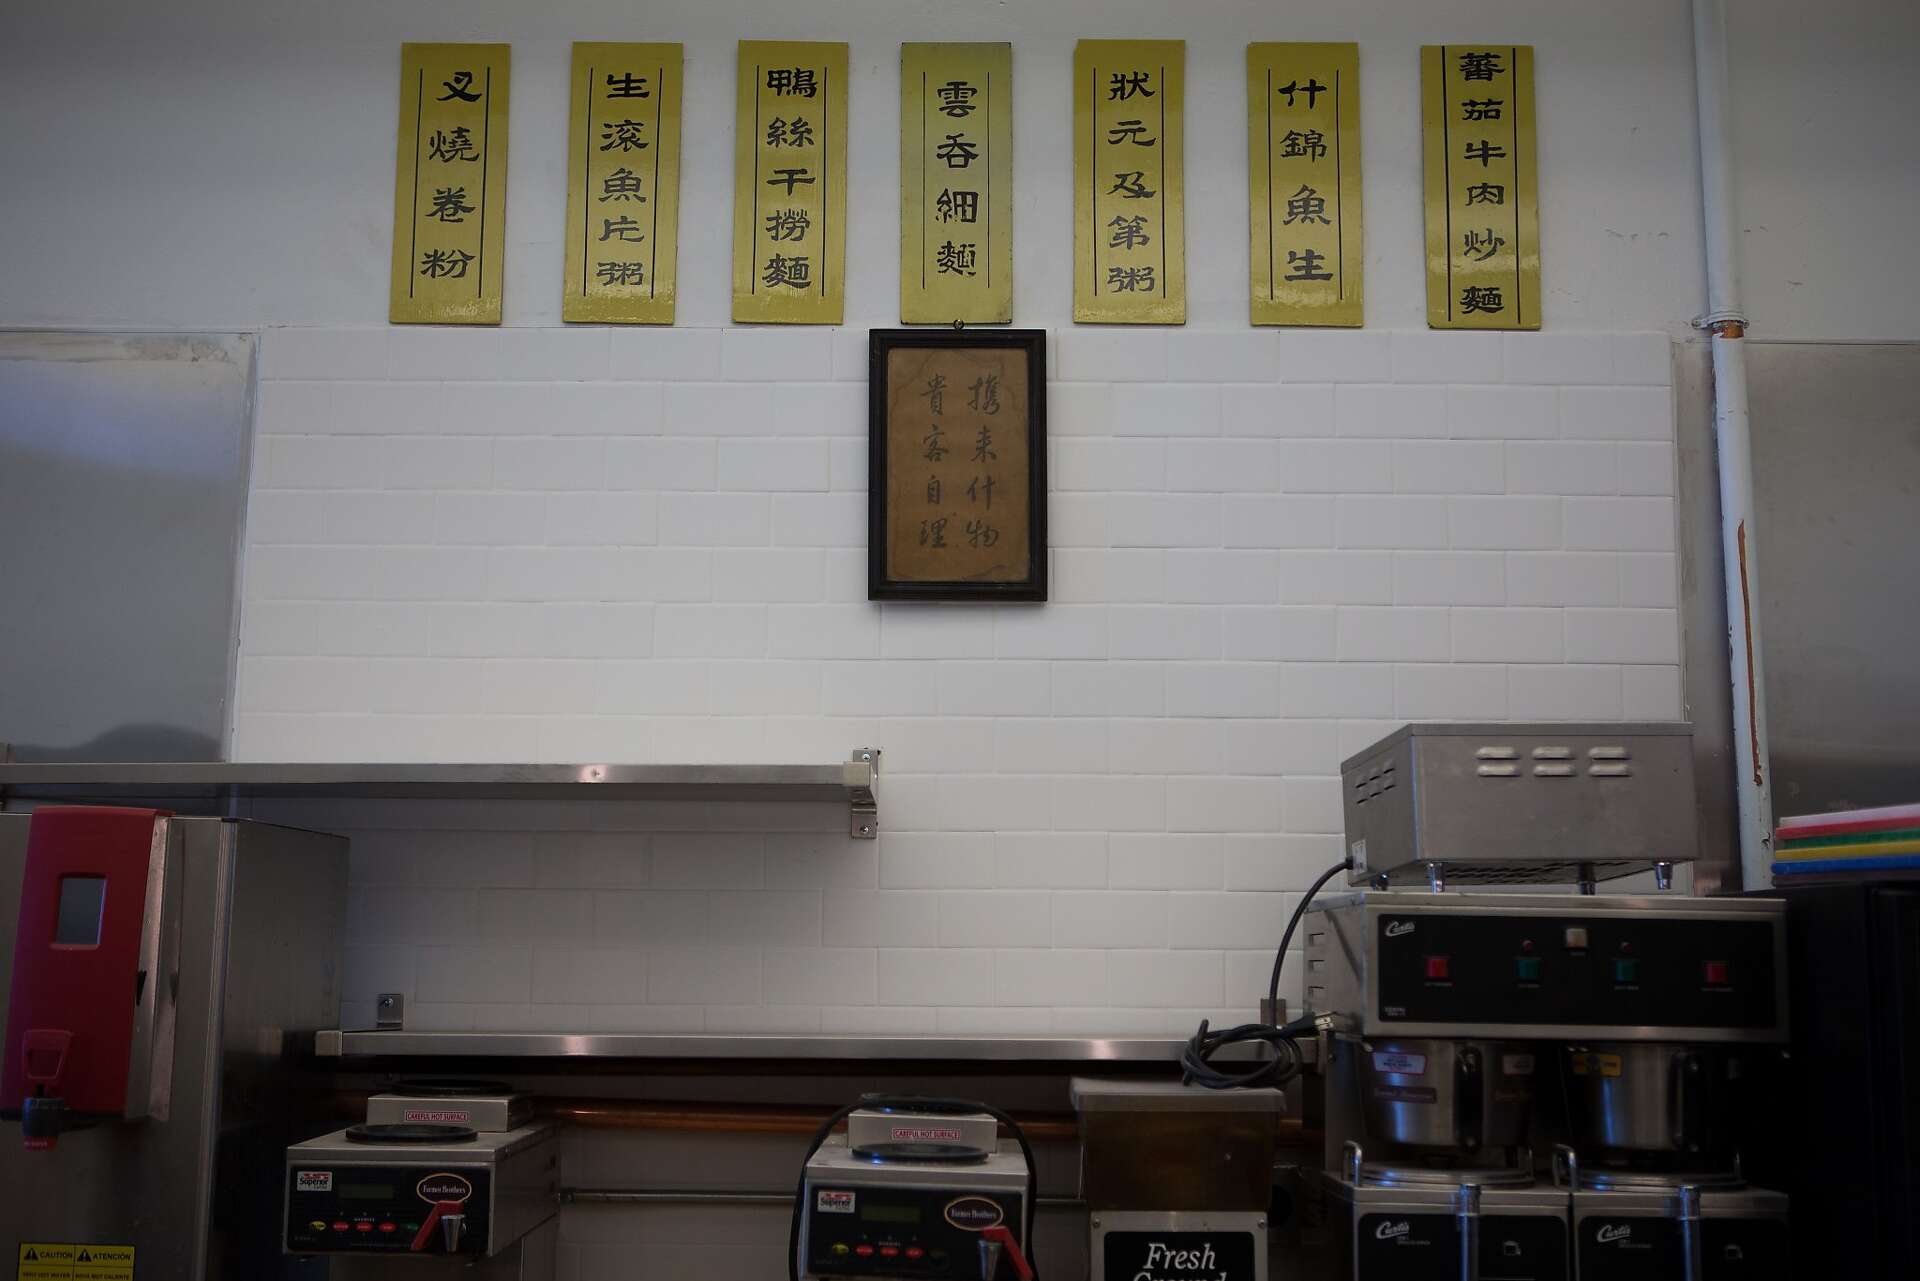 叉燒卷粉
生滚魚片粥
鴨絲干撈麵
雲吞細麵
狀元及第粥
什錦魚生
蕃茄牛肉炒麵
携来什物
貴客自理
Curtis
CAREFUL HOT SURFACE
CAREFUL HOT SURFACE
Superior
Farmer Brothers
Superior
Farmer Brothers
Fresh
Ground
Curtis
Curtis
CAUTION
ATENCIÓN
VERY HOT WATER
AGUA MUY CALIENTE